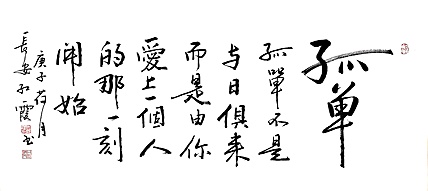 孤单
孤單不是
与日俱来
而是由你
爱上一個人
的那一刻
開始
庚子荷月
長安紅霞书